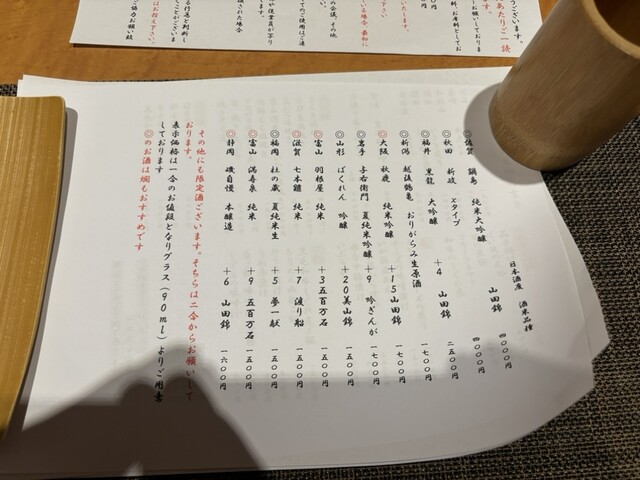 うございます。
あたりご一読
です。
お願いしておりま
料、お席料としてお
日本酒度 酒米品種
◎佐賀 鍋島 純米大吟醸 山田錦 四〇〇〇円
◎秋田 新政 Xタイプ 四〇〇〇円
◎福井 黒龍 大吟醸 +4 山田錦 二五〇〇円
◎新潟 越後鶴亀 おりがらみ生原酒 一七〇〇円
◎大阪 秋鹿 純米吟醸 +15 山田錦 一七〇〇円
◎岩手 与右衛門 夏純米吟醸 +9 吟ぎんが 一七〇〇円
◎山形 ばくれん 吟醸 +20 美山錦 一五〇〇円
◎富山 羽根屋 純米 +3 五百万石 一五〇〇円
◎滋賀 七本鎗 純米 +7 渡り船 一五〇〇円
◎福岡 杜の蔵 夏純米生 +5 夢一献 一五〇〇円
◎富山 満寿泉 純米 +9 五百万石 一五〇〇円
◎静岡 磯自慢 本醸造 +6 山田錦 一六〇〇円
その他にも限定酒ございます。そちらは二合からお願いして
おります。
表示価格は一合のお値段となりグラス(90ml)よりご用意
しております
◎のお酒は燗もおすすめです